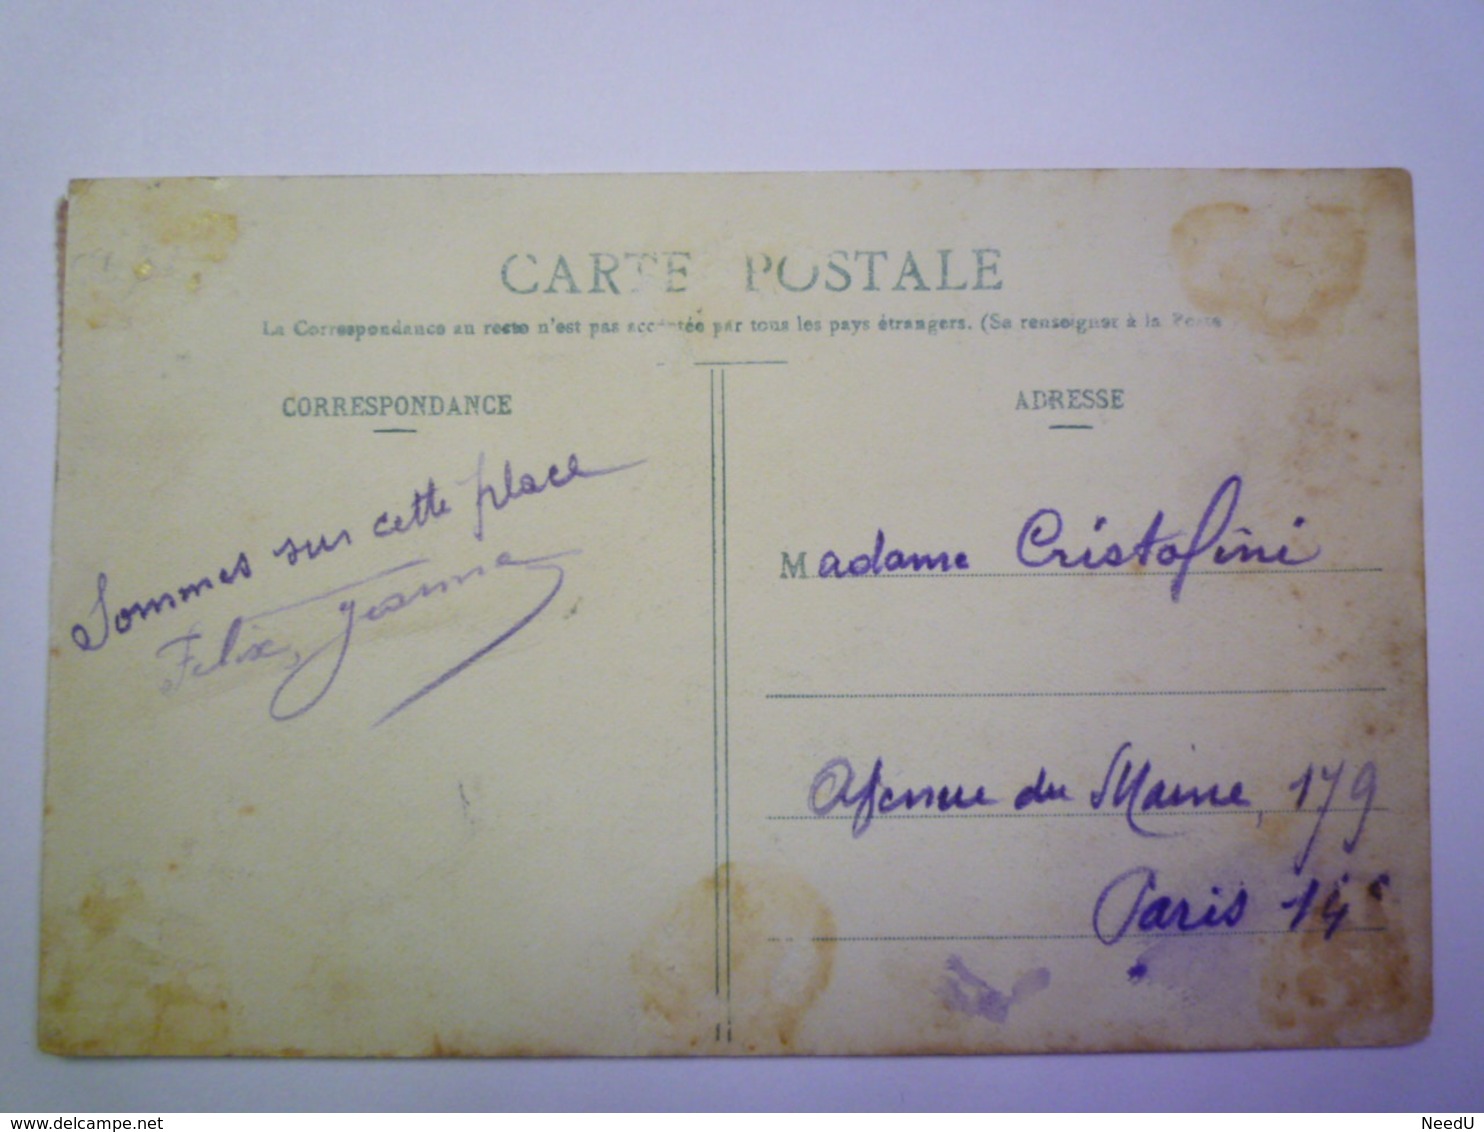 CARTE POSTALE
La Correspondance au recto n'est pas acceptée par tous les pays étrangers. (Se renseigner à la Poste
CORRESPONDANCE
Sommes sur cette place
Felix, Jeanne
ADRESSE
Madame Cristofini
Avenue du Maine, 179
Paris 14e
www.delcampe.net
NeedU